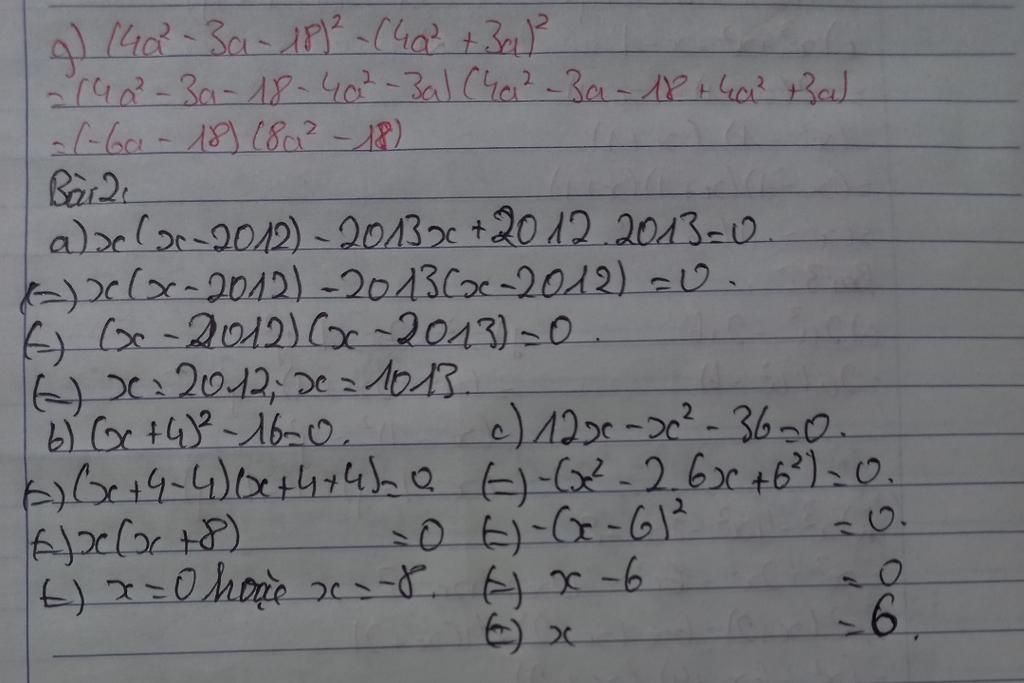 g) (4a² - 3a - 18)² - (4a² + 3a)²
= (4a² - 3a - 18 - 4a² - 3a) (4a² - 3a - 18 + 4a² + 3a)
= (-6a - 18) (8a² - 18)
Bài 2:
a) x(x - 2012) - 2013x + 2012 . 2013 = 0.
(=) x(x - 2012) - 2013(x - 2012) = 0.
(=) (x - 2012) (x - 2013) = 0.
(=) x = 2012; x = 1013.
b) (x + 4)² - 16 = 0. c) 12x - x² - 36 = 0.
(=) (x + 4 - 4) (x + 4 + 4) = 0 (=) -(x² - 2.6x + 6²) = 0.
(=) x(x + 8) = 0 (=) -(x - 6)² = 0.
(=) x = 0 hoặc x = -8. (=) x - 6 = 0
(=) x = 6.